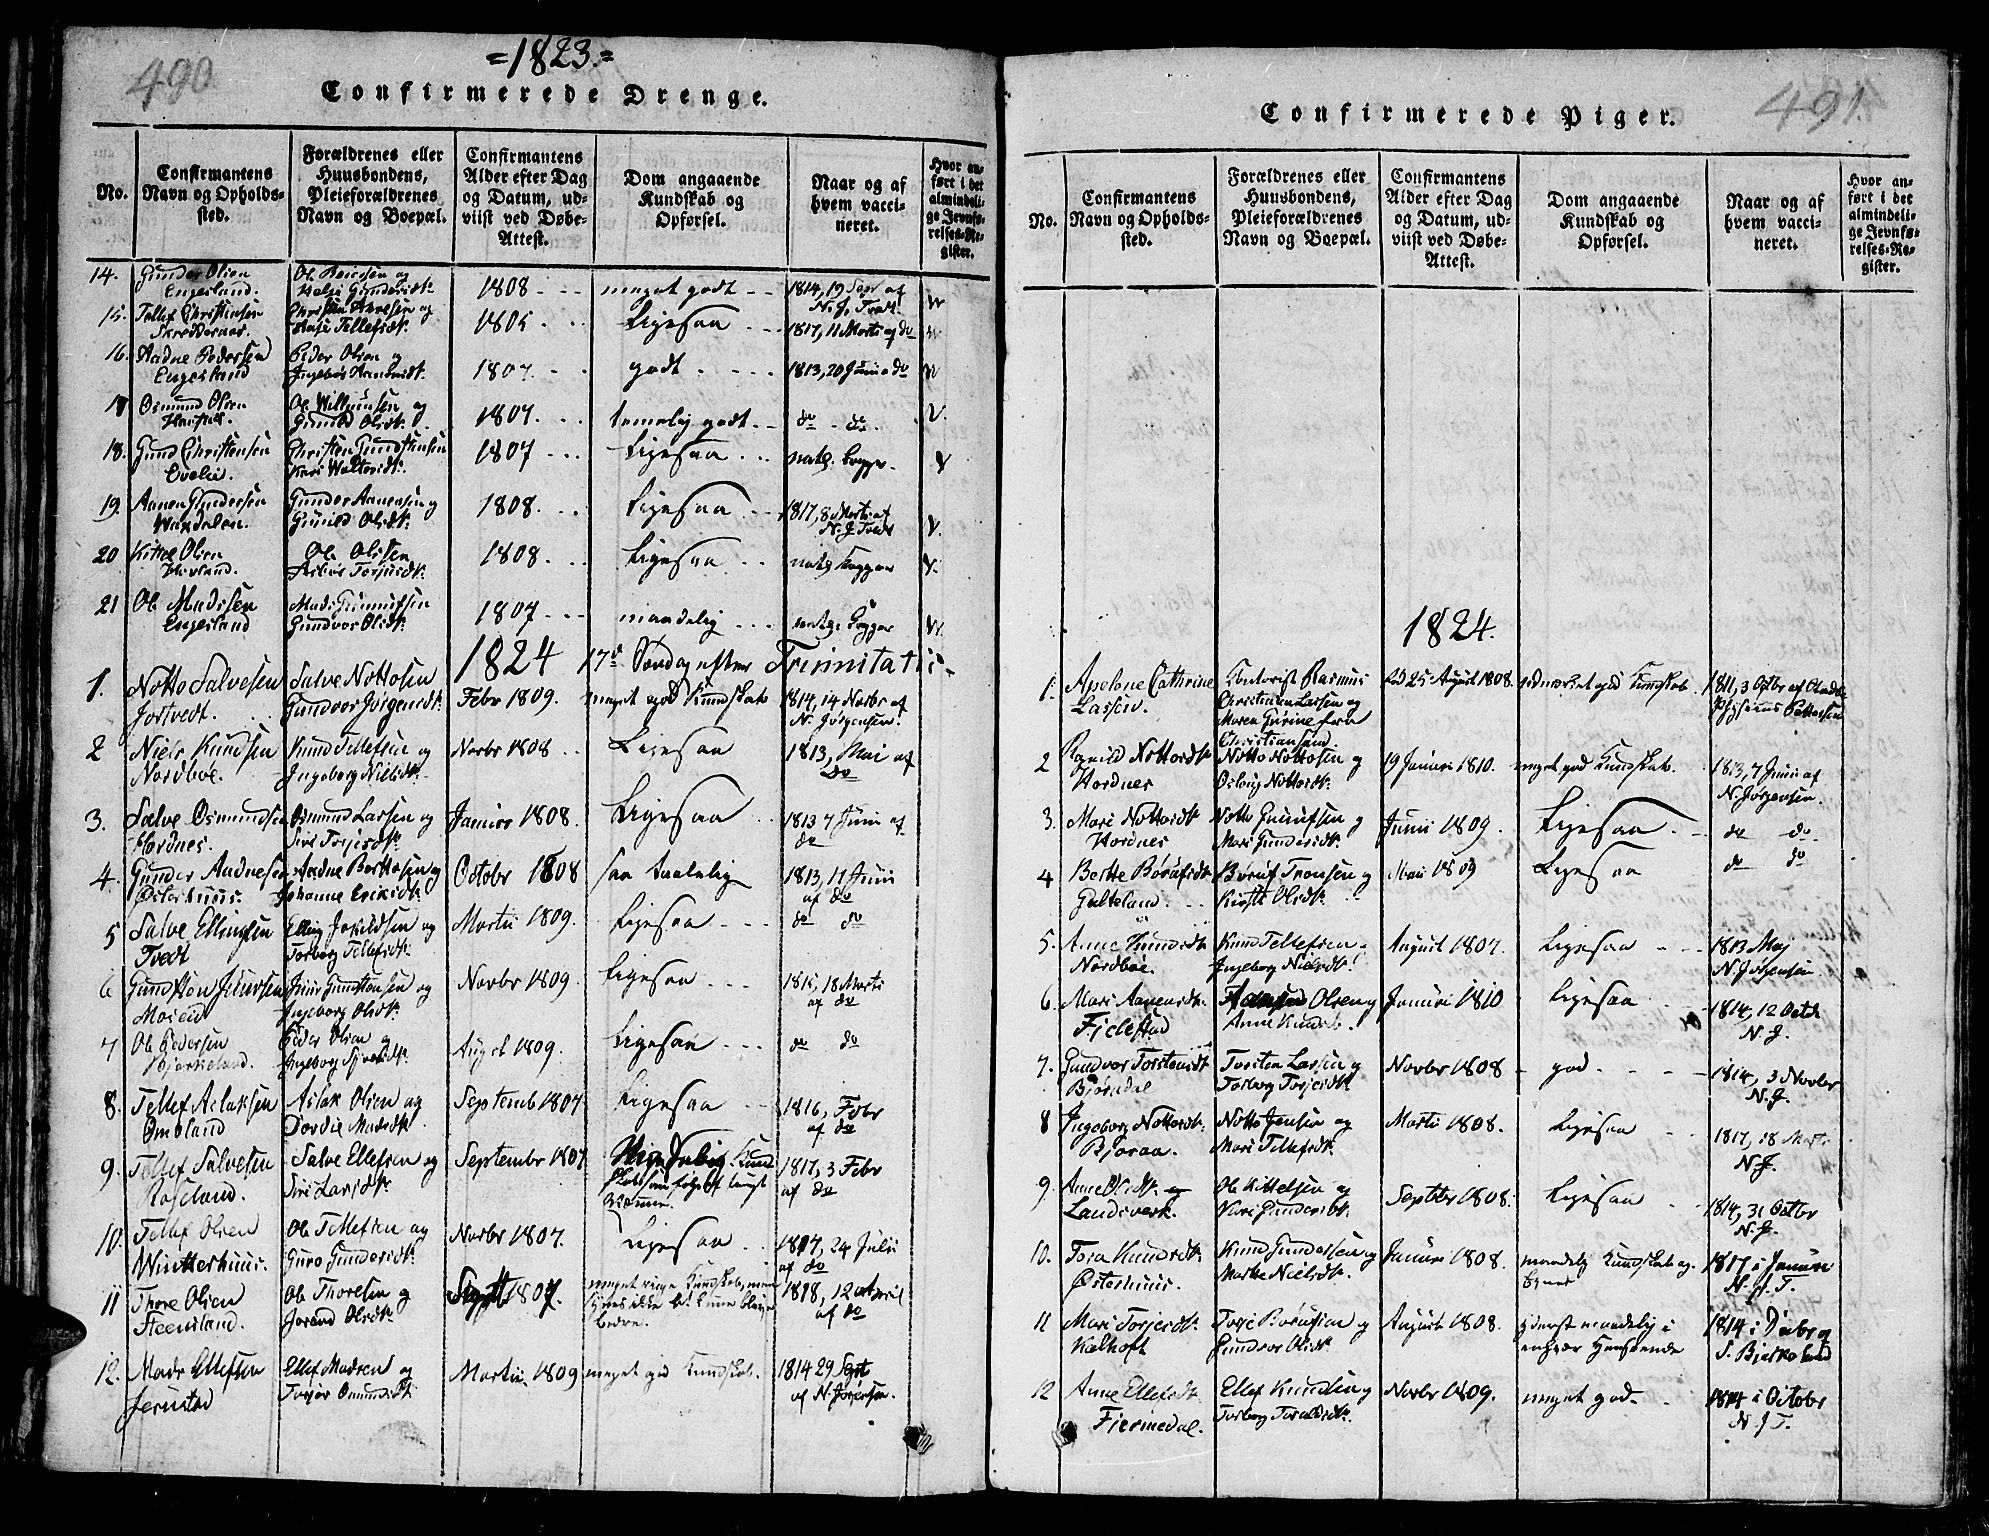 490
=1823.=
Confirmerede Drenge.
No.
Confirmantens
Navn og Opholds-
sted.
Forældrenes eller
Huusbondens,
Pleieforældrenes
Navn og Boepæl.
Confirmantens
Alder efter Dag
og Datum, ud-
viist ved Døbe-
Attest.
Dom angaaende
Kundskab og
Opførsel.
Naar og af
hvem vacci-
neret.
Hvor an-
ført i det
almindeli-
ge Jevnfø-
relses-Re-
gister.
14. Gunder Olsen
Engesland.
Gunderidt.
1808 - - -
meget godt - -
1814, 19 Sepr af
N. J. Tvedt
15. Tellef Christensen
Christen Aanesen og
Aase Tellefsdt.
1805 - - -
Ligesaa - - -
1817, 11 Marti af do
16. Aadne Pedersen
Engesland
Peder Olsen og
Ingebor Aanensdt.
1807 - - -
godt - - - -
1813, 20 Juni do
17 Osmund Olsen
Gunild Olsdt.
1807. - - -
temelig godt - -
do - do.
18. Gund Christensen
Eveli.
Christen Gundstensen
Kari
1807 - - -
Ligesaa - - -
natl. Copper.
19. Aanen Gundersen
Gunder Aanensen og
Gunild Olsdt.
1808. - - -
Ligesaa - - -
1817, 8 Marti af
N. J. Tvedt
20 Kittel Olsen
Hovland.
Ole Olsen
Torjusdt.
1808. - - -
Ligesaa - - -
natlg Kopper
21 Ole Madssen
Engesland
Mads Gunnufsen
Gundvor Olsdt.
1807 - - -
maadelig - - -
natlg. Copper
1824 17de Søndag efter Trinnitatis -
1. Notto Salvesen
Jortvedt.
Salve Nottosen
Gundvor Jørgensdt.
Febr 1809.
meget god Kundskab
1814, 14 Novbr af
N. Jørgensen.
2 Niels Knudsen
Nordbøe.
Knud Tellefsen og
Ingeborg Nielsdt.
Novbr 1808 - -
Ligesaa
1813, Mai af
Do
3. Salve Osmundsen
Hordnes.
Osmund Larsen og
Siri Torjersdt.
Januar 1808.
Ligesaa
1813 7 Juni af
do
4. Gunder Aadnesen
Østerhuus.
Aadne Berthosen og
Johanne Eriksdt.
October 1808
saa taalelig
1813, 11 Juni
af do
5 Salve Ellingsen
Tvedt
Elling Jokildsen og
Torborg Tellefsdt.
Martii 1809.
Ligesaa - - -
do do
6 Gundsten Jensen
Moseid
Jens Gundstensen og
Ingeborg Olsdt.
Novbr 1809
Ligesaa - - -
1815, 18 Marti
af do
7 Ole Pedersen
Bjorkeland.
Peder Olsen og
Ingeborg
August 1809.
Ligesaa - - -
do do
8. Tellef Aslaksen
Omdland
Aslak Olsen og
Tordie Madsdt.
Septemb 1807
Ligesaa - -
1816, Febr
af do
9. Tellef Salvesen
Roseland.
Salve Ellefsen og
Siri Larsdt.
Septembr 1807
1817, 3 Febr
af do
10. Tellef Olsen
Wintterhuus.
Ole Tellefsen og
Guro Gundersdt.
Novbr 1807.
Ligesaa - -
1817, 24 Julii
af do
11 Thore Olsen
Steensland.
Ole Thoresen og
Jorand Olsdt.
Septb 1807.
meget ringe Kundskab, men
bedre.
1818, 12 April
af do
12. Mads Ellefsen
Jerustad
Ellef Madsen og
Torjør Osmundsdt.
Martii 1809
meget god Kundskab.
1814 29 Sept
af N. Jørgensen.
491.
Confirmerede Piger.
No.
Confirmantens
Navn og Opholds-
sted.
Forældrenes eller
Huusbondens,
Pleieforældrenes
Navn og Boepæl.
Confirmantens
Alder efter Dag
og Datum, ud-
viist ved Døbe-
Attest.
Dom angaaende
Kundskab og
Opførsel.
Naar og af
hvem vacci-
neret.
Hvor an-
ført i det
almindeli-
ge Jevnfø-
relses-Re-
gister.
1824.
1. Apelone Cathrine
Lassen.
Rasmus
Christian Lassen og
Maren Gurine fra
Christiansand
25 August 1808.
god Kundskab
1811, 3 Octbr af
Pettersen
2 Ragnild Nottosdt.
Hordnes
Notto Nottosen og
Oslaug Nottosdt.
19 Januri 1810.
meget god Kundskab.
1813, 7 Juni af
N. Jørgensen.
3. Mari Nottosdt.
Hordnes
Notto Gunufsen og
Mari Gundersdt.
Junii 1809.
Ligesaa - -
do do
4 Berthe Børufsdt.
Galteland. - -
Børuf Tronsen og
Kirsti Olsdt.
Maii 1809
Ligesaa
do do
5. Anne Knudsdt.
Nordbøe.
Knud Tellefsen
Ingeborg Nielsdt.
August 1807.
Ligesaa - - -
1813 Maj
N. Jørgensen
6. Mari Aanensdt.
Fidelstad
Olsen og
Anne Knudsd.
Januri 1810
Ligesaa - -
1814, 12 Octb
N. J.
7. Gundvor Torstensdt
Bjorndal
Torsten Lassen og
Torborg Torjersdt.
Novbr 1808
- god - - - -
1814, 3 Novbr
N. J.
8 Ingeborg Nottosdt.
Bjoraa.
Notto Jensen og
Mari Tellefsdt.
Marti 1808.
Ligesaa - -
1817, 18 Marti
N. J.
9. Anne Olsdt. og
Landsverk.
Ole Kittelsen og
Kari Gundersdt.
Septbr 1808.
Ligesaa - -
1814, 31 Octbr
N. J.
10. Tora Knudsdt.
Østerhuus.
Knud Gundersen og
Marthe Nielsdt.
Januri 1808.
maadelig Kundskab og
1817 i Januri
N. J. T.
11 Mari Torjersdt.
Kalhoft
Torje Børufsen og
Gundvor Olsdt.
August 1808.
maadelig i
enhver Henseende
1814 i Decbr af
S. Bjerkeland
12 Anne Ellefsdt.
Fiermedal.
Ellef Knudsen og
Torborg Toraldsdt.
Novbr 1809.
meget god - -
1814 i October
N. J. T.